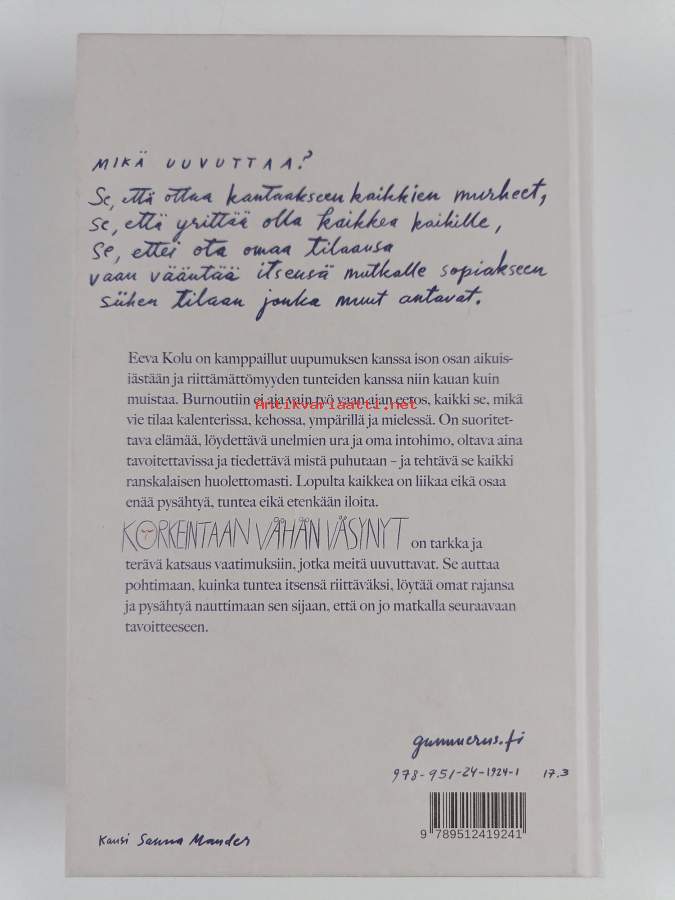 MIKÄ UUVUTTAA?
Se, että ottaa kantaakseen kaikkien murheet,
se, että yrittää olla kaikkea kaikille,
se, ettei ota omaa tilaansa
vaan vääntää itsensä mutkalle sopiakseen
siihen tilaan jonka muut antavat.
Eeva Kolu on kamppaillut uupumuksen kanssa ison osan aikuis-
iästään ja riittämättömyyden tunteiden kanssa niin kauan kuin
muistaa. Burnoutiin ei aja vain työ vaan ajan eetos, kaikki se, mikä
Antikvariaatti.net
vie tilaa kalenterissa, kehossa, ympärillä ja mielessä. On suoritet-
tava elämää, löydettävä unelmien ura ja oma intohimo, oltava aina
tavoitettavissa ja tiedettävä mistä puhutaan – ja tehtävä se kaikki
ranskalaisen huolettomasti. Lopulta kaikkea on liikaa eikä osaa
enää pysähtyä, tuntea eikä etenkään iloita.
KORKEINTAAN VÄHÄN VÄSYNYT on tarkka ja
terävä katsaus vaatimuksiin, jotka meitä uuvuttavat. Se auttaa
pohtimaan, kuinka tuntea itsensä riittäväksi, löytää omat rajansa
ja pysähtyä nauttimaan sen sijaan, että on jo matkalla seuraavaan
tavoitteeseen.
gummerus.fi
978-951-24-1924-1 17.3
9 789512 419241
Kansi Sanna Mander